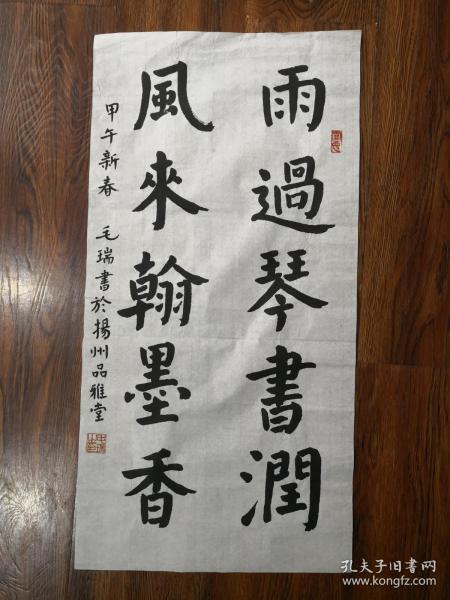 雨過琴書潤
風來翰墨香
甲午新春 毛瑞書於揚州品雅堂
孔夫子旧书网
www.kongfz.com